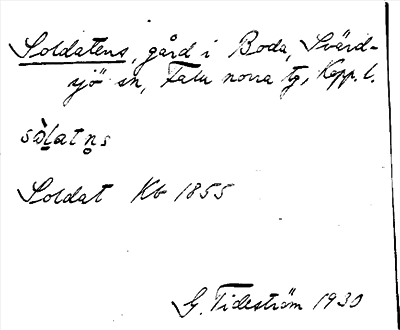 Soldatens, gård i Boda, Svärd-
sjö sn, Falu norra tg, Kopp. l.
sɷ̀l̠at n̥s
Soldat Kb 1855
G. Tideström 1930